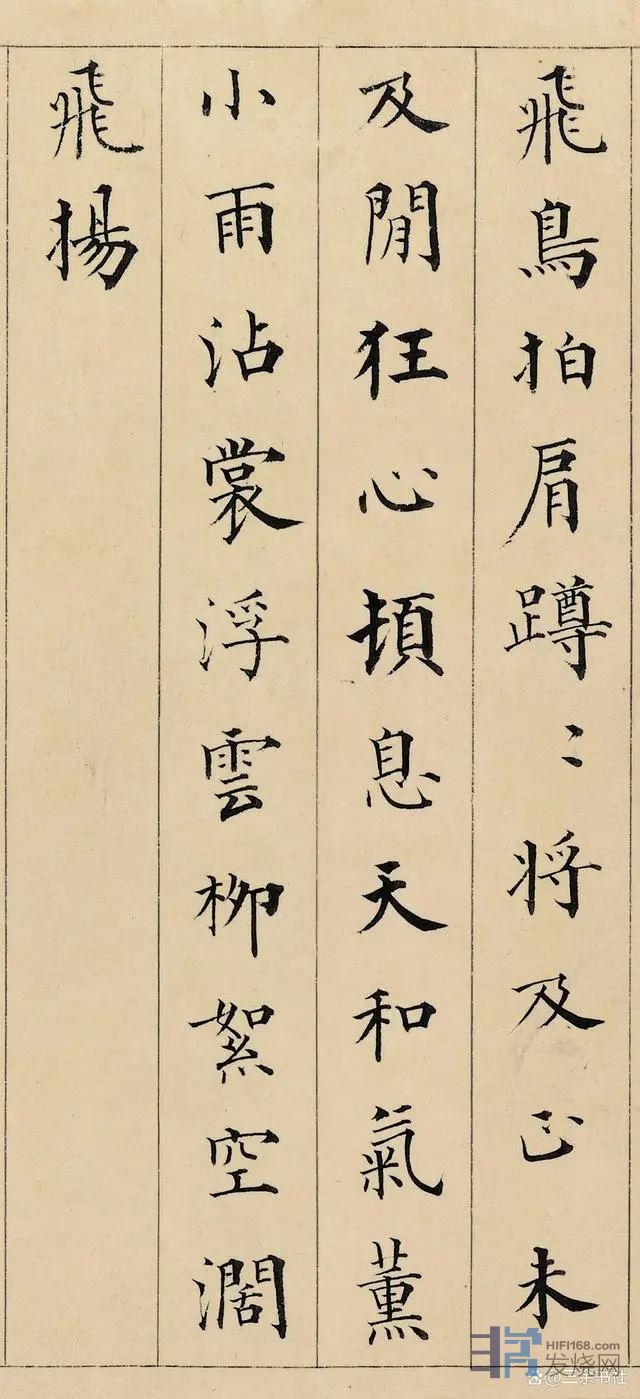 飛鳥拍肩蹲〻将及正未
及閒狂心頓息天和氣薰
小雨沾裳浮雲柳絮空濶
飛揚
HIFI168.com
发烧网
@三余书社